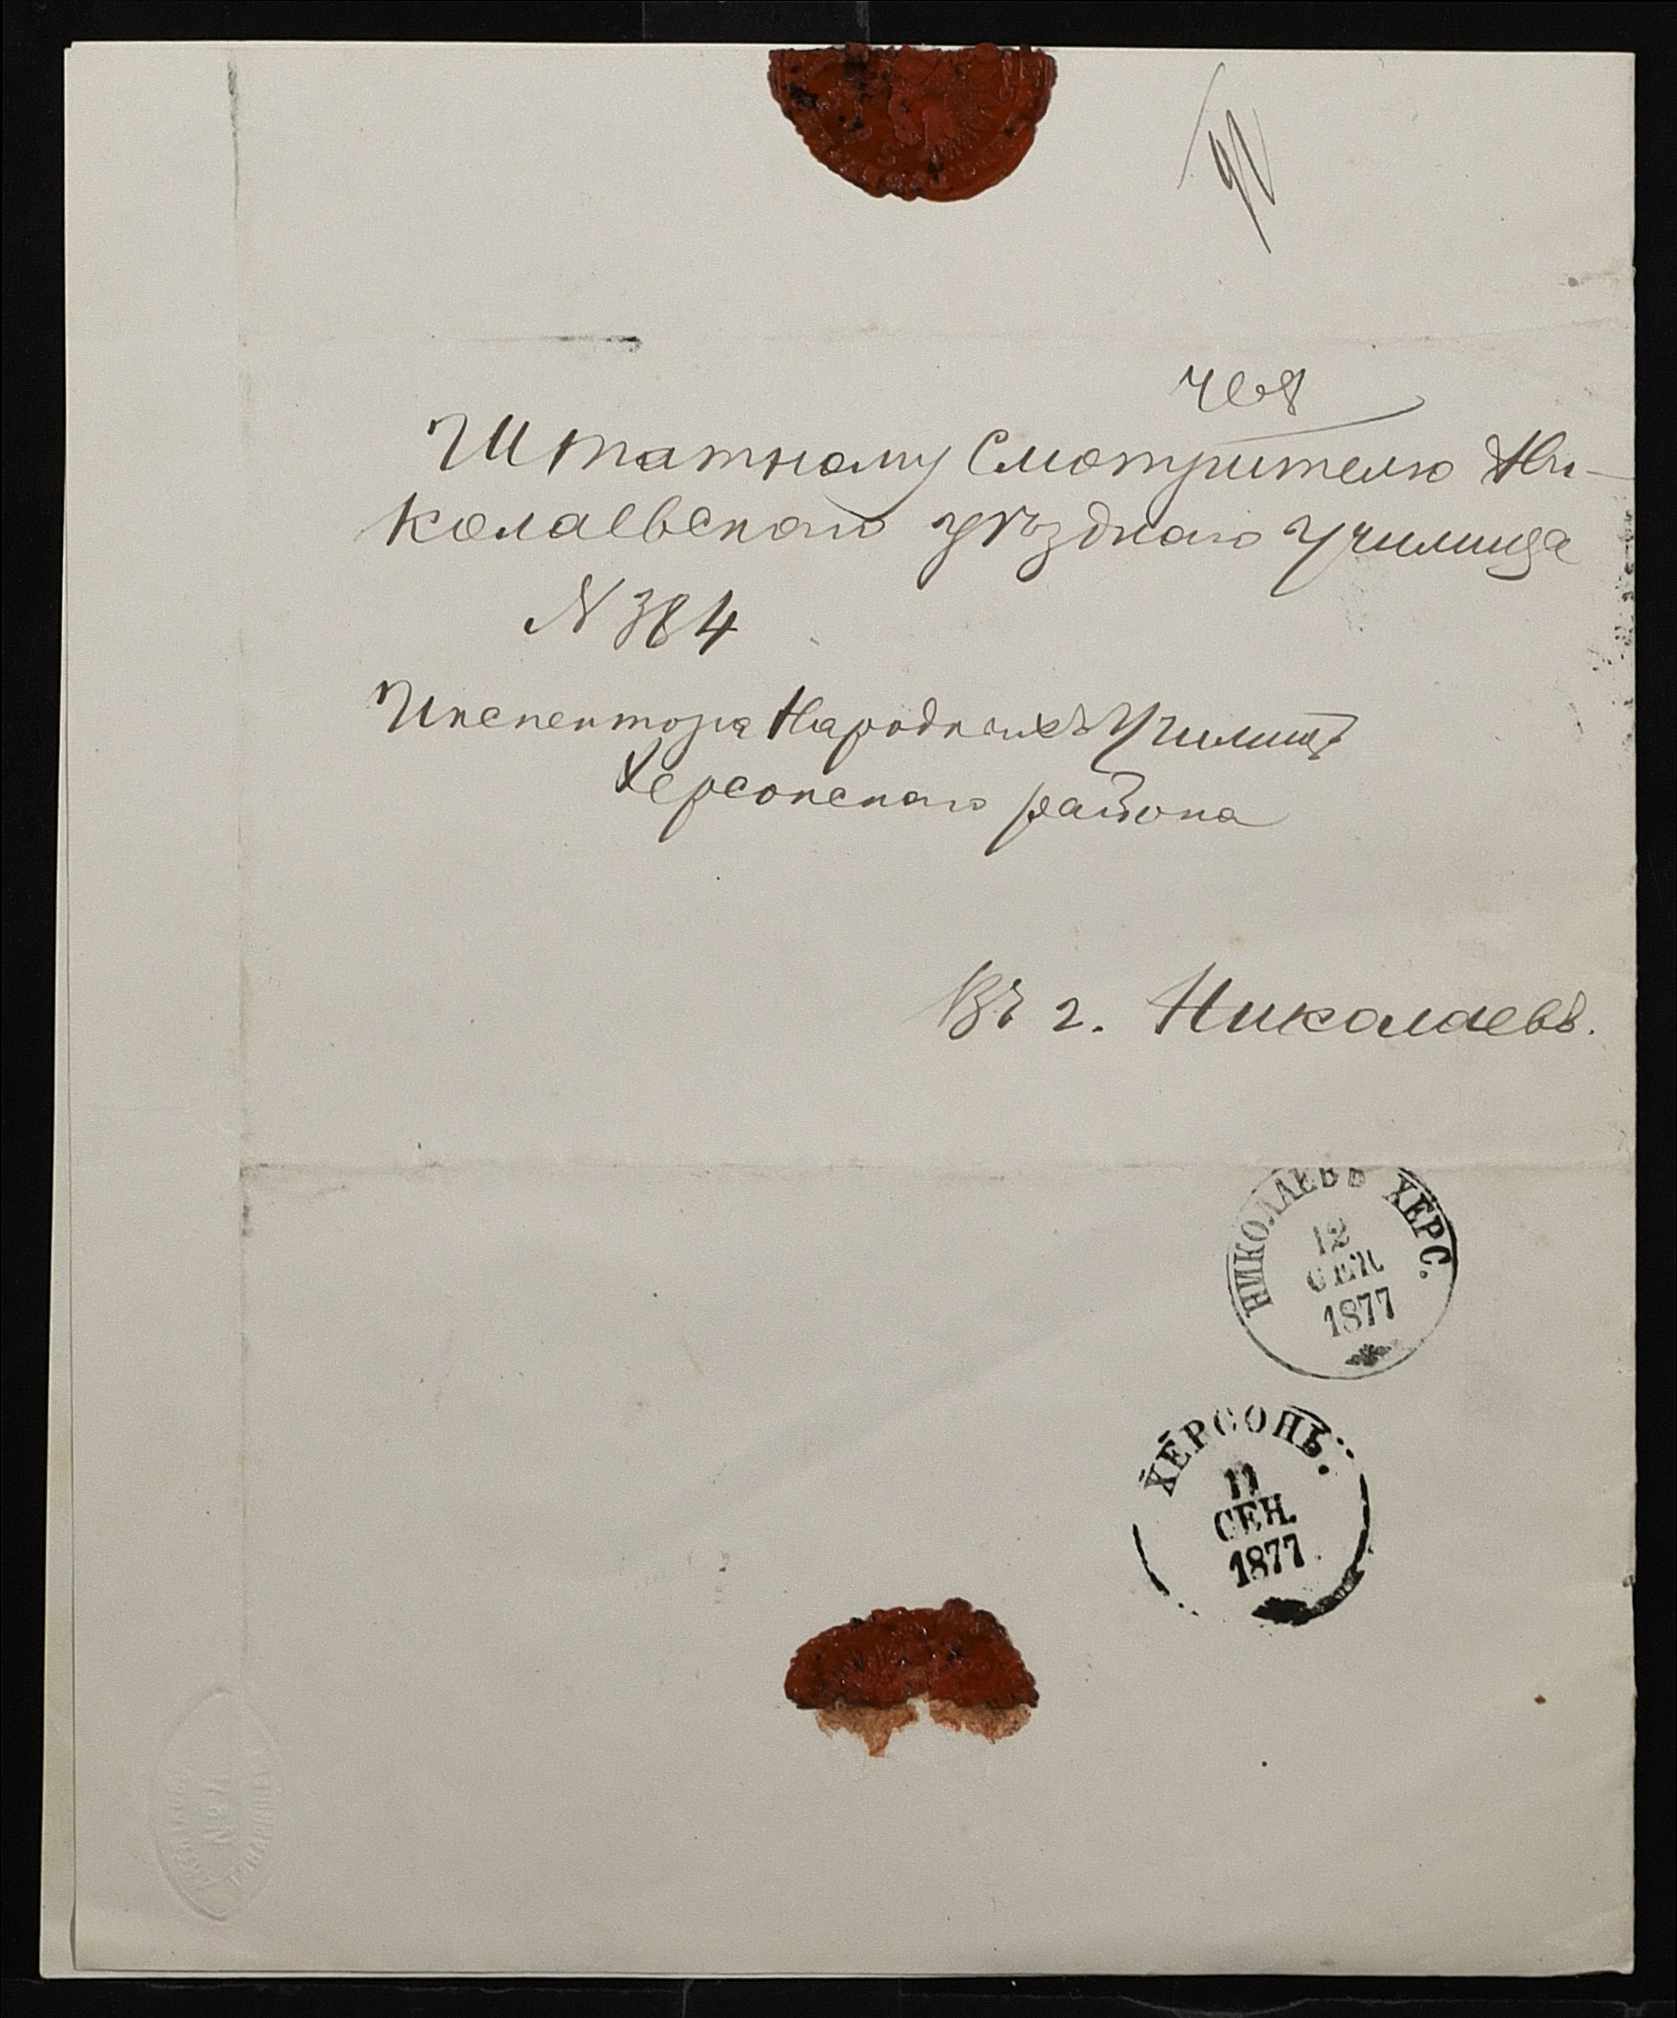 Штатному Смотрителю Ни-
колаевскаго уѣзднаго училища
N 384
Инспектора Народныхъ Училищъ
Херсонскаго района
Въ г. Николаевъ.
НИКОЛАЕВЪ ХЕРС.
12
СЕН.
1877
ХЕРСОНЬ.
11
СЕН.
1877